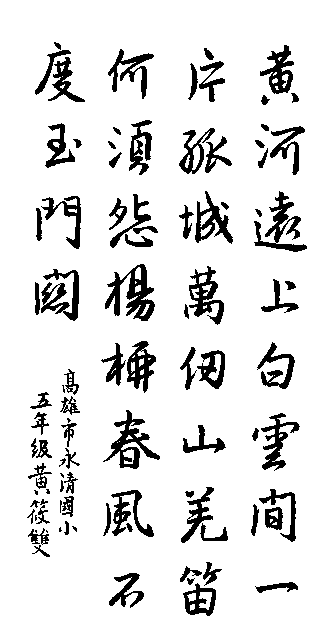 黃河遠上白雲間一
片孤城萬仞山羌笛
何須怨楊柳春風不
度玉門關
高雄市永清國小
五年級黃筱雙